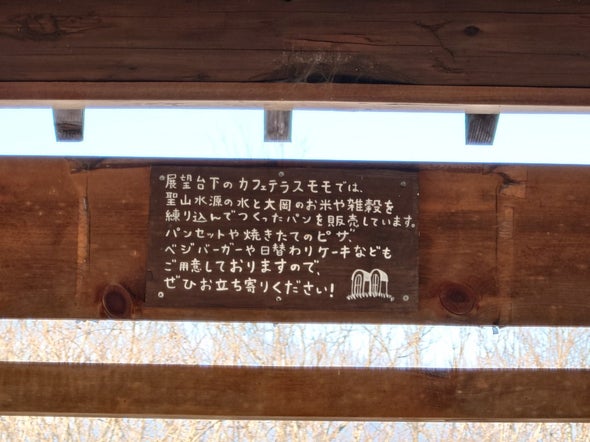 展望台下のカフェテラスモモでは、
聖山水源の水と大岡のお米や雑穀を
練り込んでつくったパンを販売しています。
パンセットや焼きたてのピザ、
ベジバーガーや日替わりケーキなども
ご用意しておりますので、
ぜひお立ち寄りください!